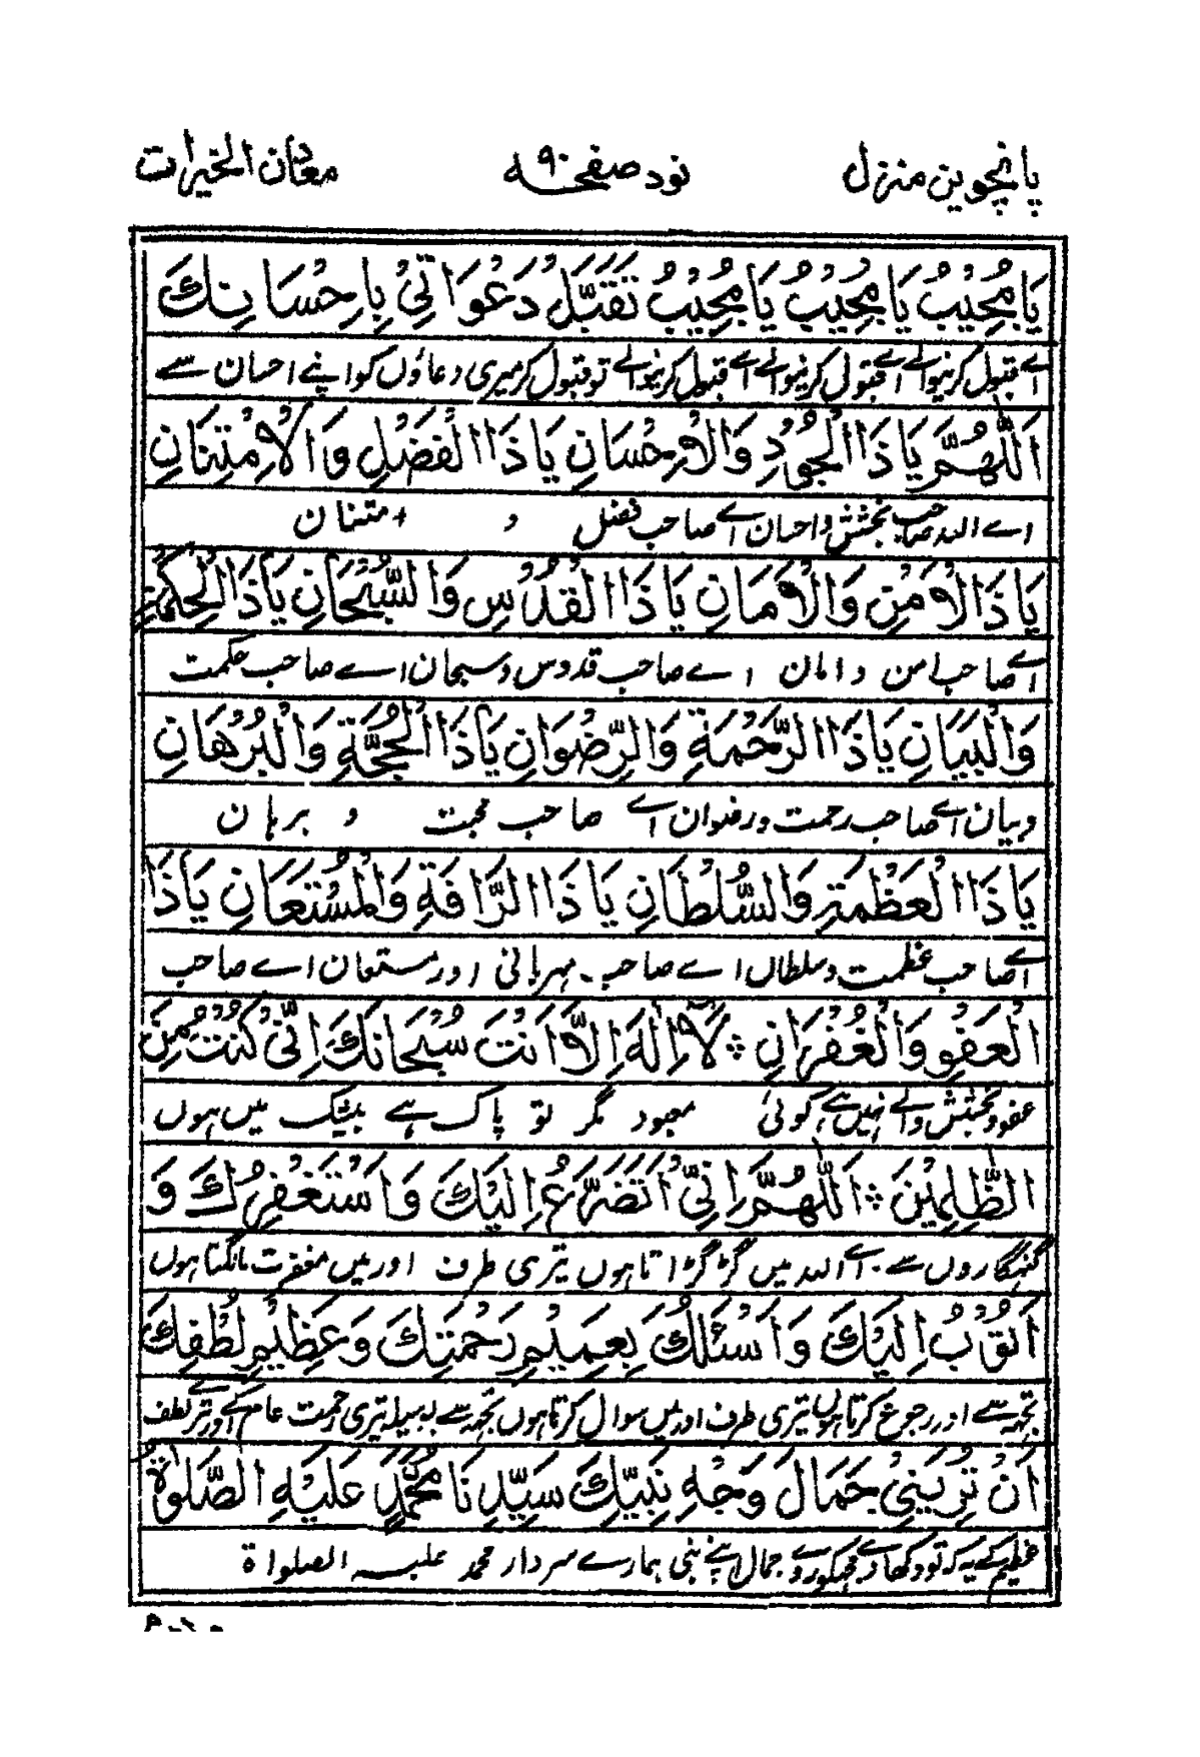 پانچویں منزل نود صفحه ۹۰ معادن الخیرات
يَا مُجِيْبُ يَا مُجِيْبُ يَا مُجِيْبُ تَقَبَّلْ دَعْوَاتِيْ بِاِحْسَانِكَ
اے قبول کرنیوالے اے قبول کرنیوالے اے قبول کرنیوالے تو قبول کر میری دعاؤں کو اپنے احسان سے
اَللّٰهُمَّ يَا ذَا الْجُوْدِ وَالْاِحْسَانِ يَا ذَا الْفَضْلِ وَالْاِمْتِنَانِ
اے اللہ صاحب بخشش و احسان اے صاحب فضل و امتنان
يَا ذَا الْاَمْنِ وَالْاَمَانِ يَا ذَا الْقُدُسِ وَالسُّبْحَانِ يَا ذَا الْحِكْمَةِ
اے صاحب امن و امان اے صاحب قدوس و سبحان اے صاحب حکمت
وَالْبَيَانِ يَا ذَا الرَّحْمَةِ وَالرِّضْوَانِ يَا ذَا الْحُجَّةِ وَالْبُرْهَانِ
و بیان اے صاحب رحمت و رضوان اے صاحب حجت و برہان
يَا ذَا الْعَظَمَةِ وَالسُّلْطَانِ يَا ذَا الرَّافَةِ وَالْمُسْتَعَانِ يَا ذَا
اے صاحب عظمت و سلطان اے صاحب مہربانی اور مستعان اے صاحب
الْعَفْوِ وَالْغُفْرَانِ ؞ لَآ اِلٰهَ اِلَّآ اَنْتَ سُبْحَانَكَ اِنِّيْ كُنْتُ مِنَ
عفو و بخشش والے نہیں ہے کوئی معبود مگر تو پاک ہے بیشک میں ہوں
الظّٰلِمِيْنَ ؞ اَللّٰهُمَّ اِنِّيْ اَتَضَرَّعُ اِلَيْكَ وَاَسْتَغْفِرُكَ وَ
گنہگاروں سے۔ اے اللہ میں گڑگڑاتا ہوں تیری طرف اور میں مغفرت مانگتا ہوں
اَتُوْبُ اِلَيْكَ وَاَسْئَلُكَ بِعَمِيْمِ رَحْمَتِكَ وَعَظِيْمِ لُطْفِكَ
تجھ سے اور رجوع کرتا ہوں تیری طرف اور میں سوال کرتا ہوں تجھ سے بوسیلہ تیری رحمت عام کے اور تیرے لطف
اَنْ تُرِيَنِيْ جَمَالَ وَجْهِ نَبِيِّكَ سَيِّدِنَا مُحَمَّدٍ عَلَيْهِ الصَّلٰوةُ
عظیم کے یہ کہ تو دکھادے مجھکو روے جمال اپنے نبی ہمارے سردار محمد علیہ الصلواة